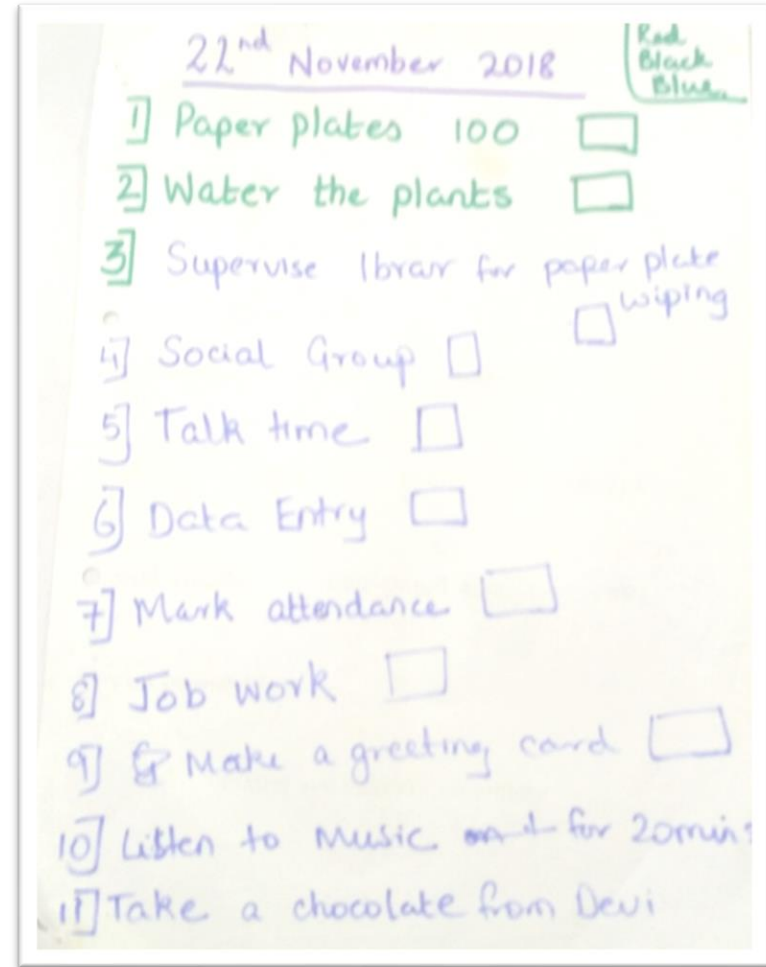 22nd November 2018
Red
Black
Blue
1] Paper plates 100
2] Water the plants
3] Supervise Ibrar for paper plate
wiping
4] Social Group
5] Talk time
6] Data Entry
7] Mark attendance
8] Job work
9] Make a greeting card
10] Listen to Music for 20 mins
11] Take a chocolate from Devi